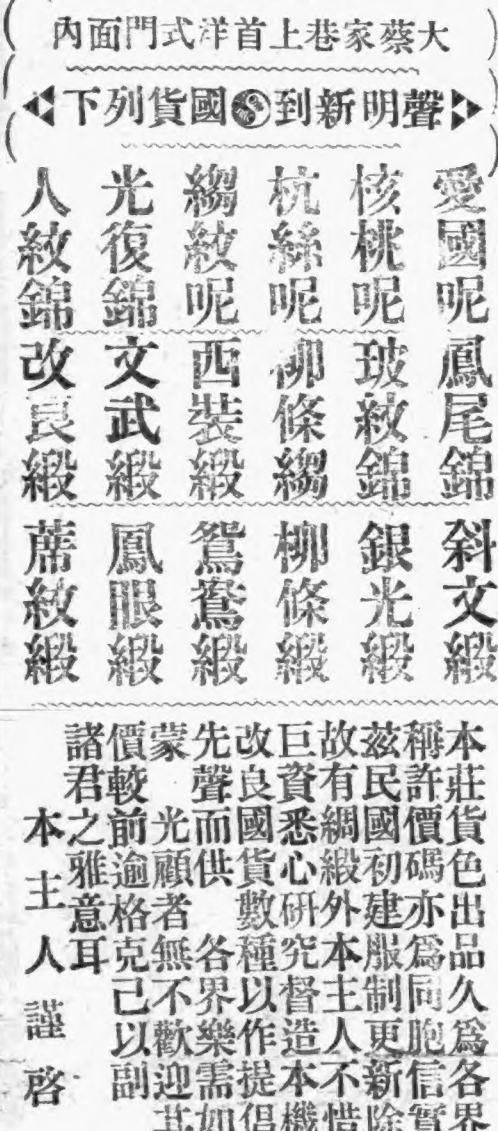 大蔡家巷上首洋式門面內
聲明新到國貨列下
愛國呢
核桃呢
杭絲呢
縐紋呢
光復錦
人紋錦
鳳尾錦
玻紋錦
柳條縐
西裝緞
文武緞
改良緞
斜文緞
銀光緞
柳條緞
鴛鴦緞
鳳眼緞
蓆紋緞
本莊貨色出品久爲各界
稱許價碼亦爲同胞信實
茲民國初建服制更新除
故有綢緞外本主人不惜
巨資悉心研究督造本機
改良國貨數種以作提倡
先聲而供 各界樂需如
蒙 光顧者無不歡迎其
價較前逾格克己以副
諸君之雅意耳
本主人謹啓